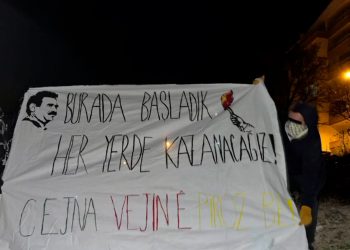 BURADA BAŞLADIK
HER YERDE KAZANACAĞIZ!
CEJNA VEJÎNÊ PÎROZ BE